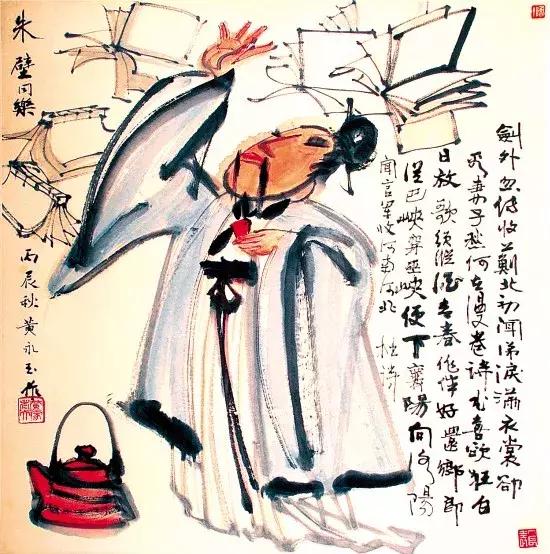 劍外忽傳收薊北初聞涕淚滿衣裳卻
看妻子愁何在漫卷詩書喜欲狂白
日放歌須縱酒青春作伴好還鄉即
從巴峽穿巫峽便下襄陽向洛陽
聞官軍收河南河北 杜詩
朱壁同樂
丙辰秋黃永玉作